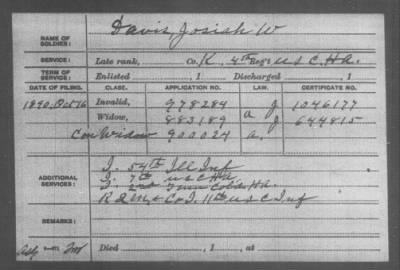 NAME OF SOLDIER: Davis, Josiah W
SERVICE: Late rank, Co. K, 4th Reg't U S C. H A.
TERM OF SERVICE: Enlisted , 1 Discharged , 1
DATE OF FILING. CLASS. APPLICATION NO. LAW. CERTIFICATE NO.
1890, Oct 16 Invalid, 978284 J 1046177
Widow, 883189 a J 644815
Con Widow 900024 a.
ADDITIONAL SERVICES: I. 54th Ill Inf
I. 7th U S C HA
I. 2nd Tenn Cold HA.
& Co I. 11th U S C Inf
REMARKS:
Died , 1 , at